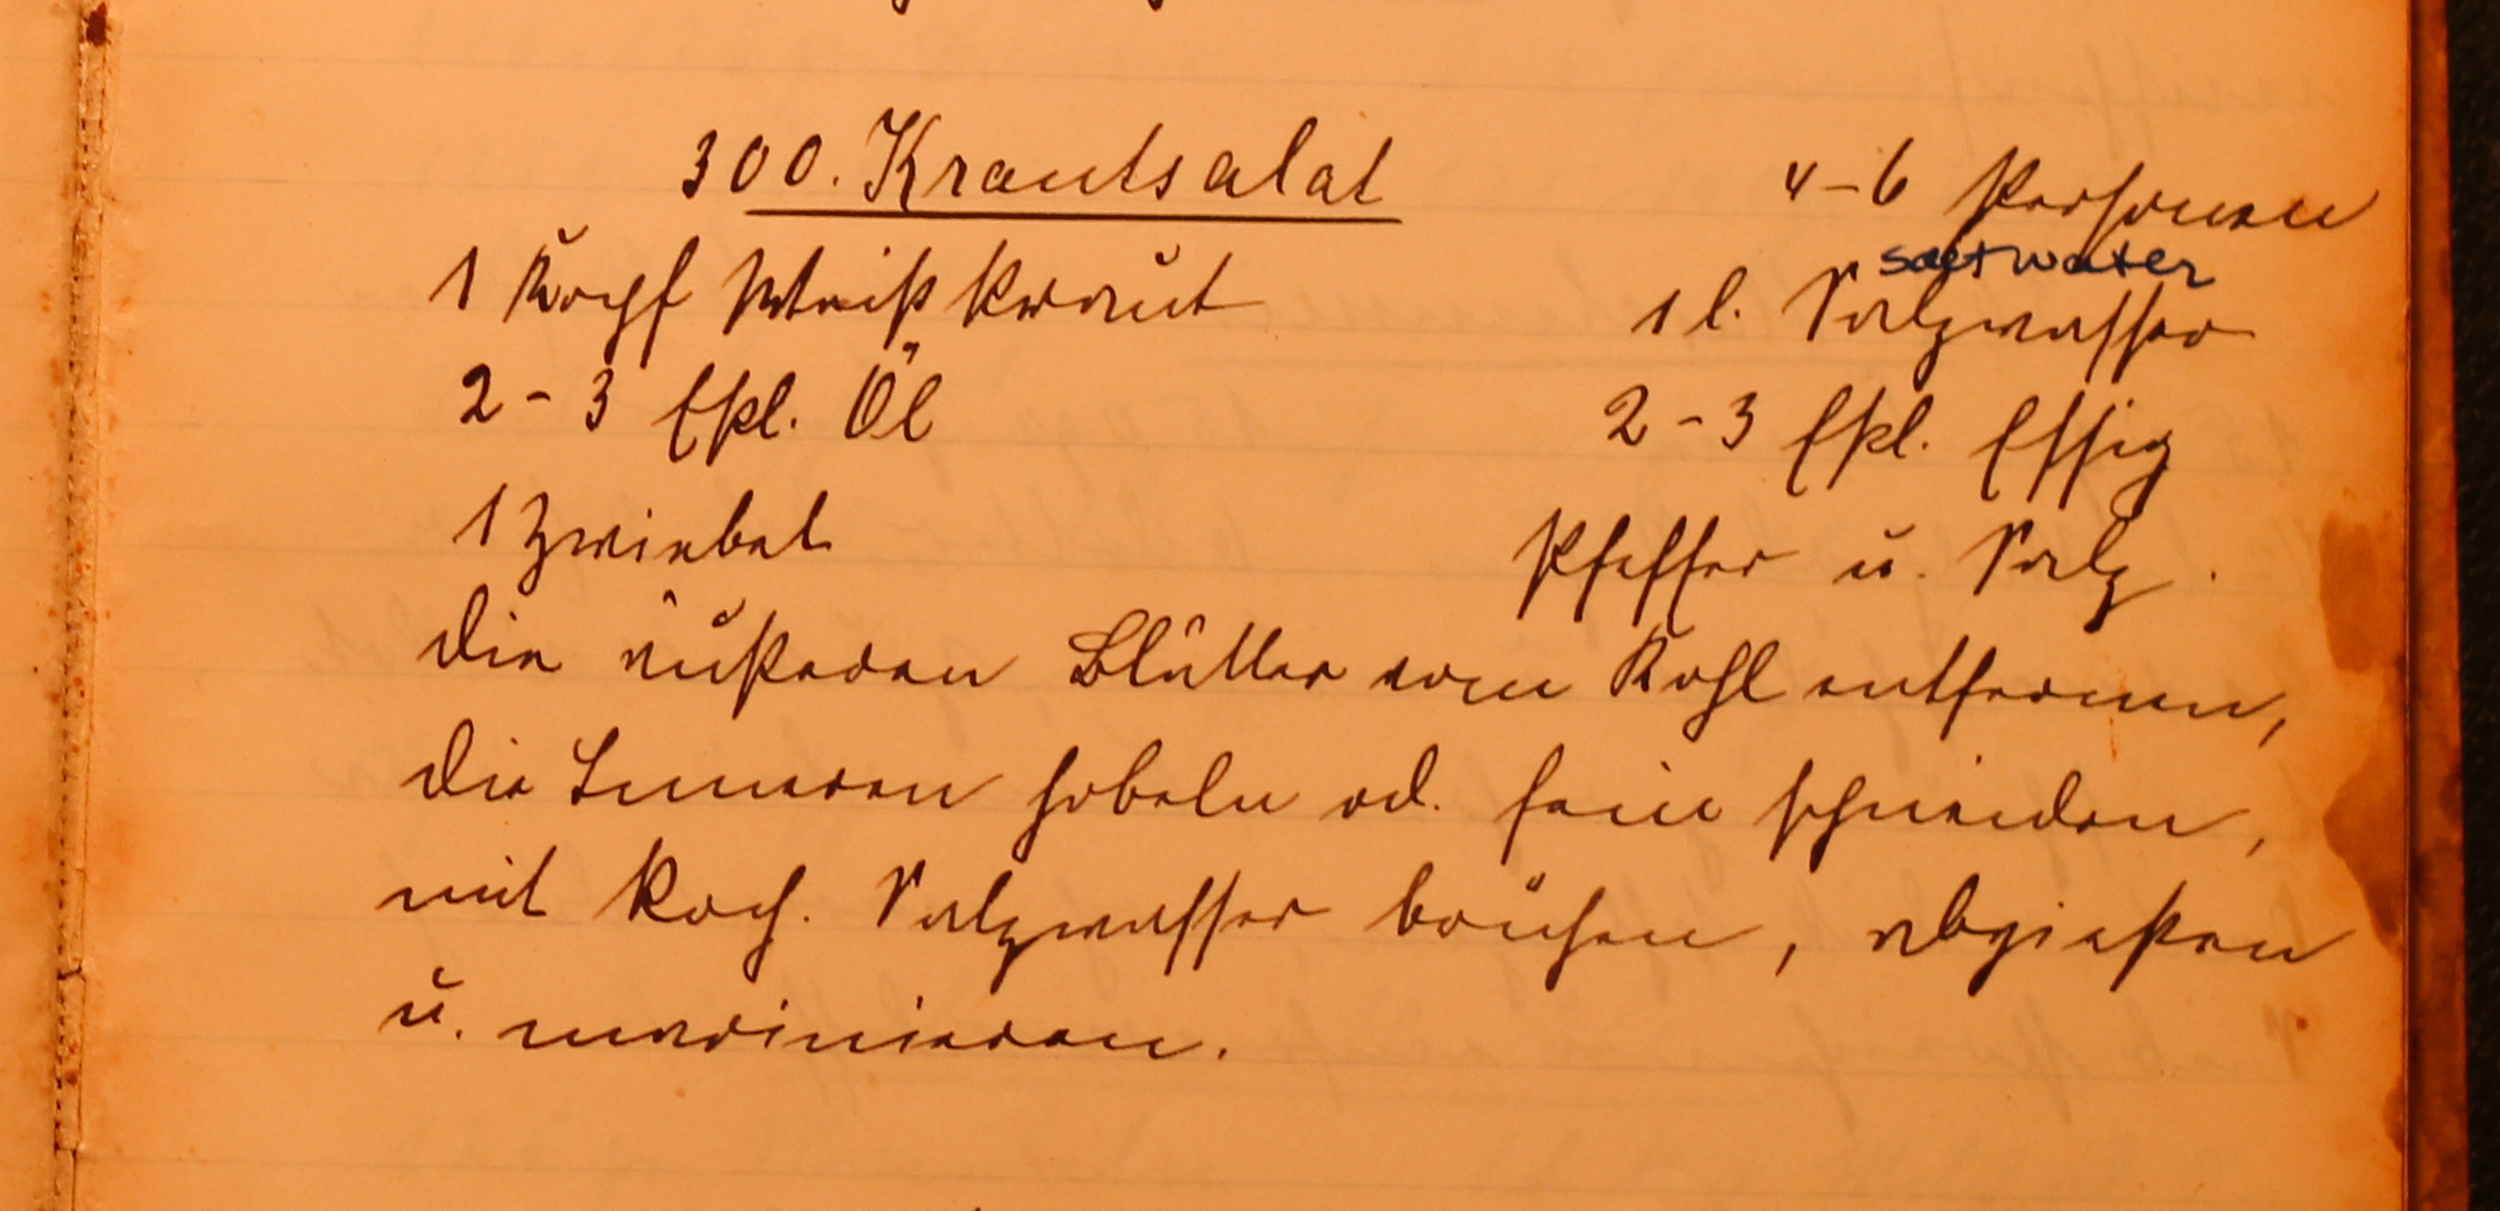 300. Krautsalat 4-6 Personen
saltwater
1 Kopf Weißkraut 1 l. Salzwasser
2-3 Eßl. Öl 2-3 Eßl. Essig
1 Zwiebel Pfeffer u. Salz.
die äußeren Blätter vom Kohl entfernen,
die Inneren hobeln od. fein schneiden,
mit koch. Salzwasser brühen, abgießen
u. marinieren.